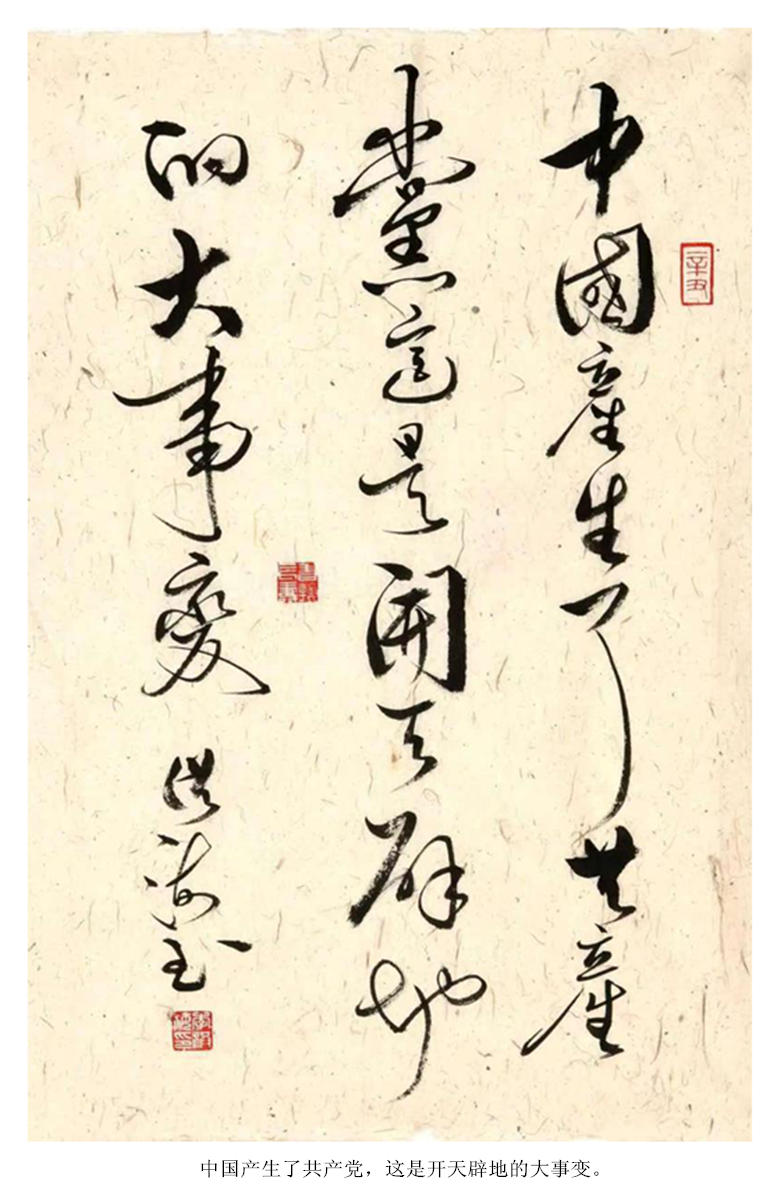 中國產生了共產
黨這是開天辟地
的大事變
洪海玉
辛丑
中国产生了共产党，这是开天辟地的大事变。